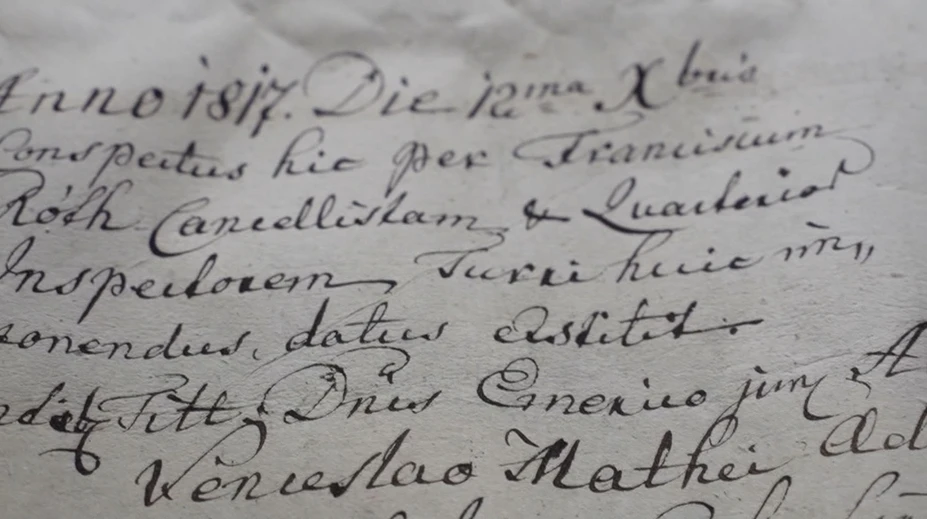 Anno 1817. Die 12ma Xbris
Conspectus hic per Franciscum
Róth Cancellistam & Quarterior
Inspectorem, Turri huic im„
ponendus, datus extitit.
Titt. Dnis Emerico jun
Venceslao Mathei Ad